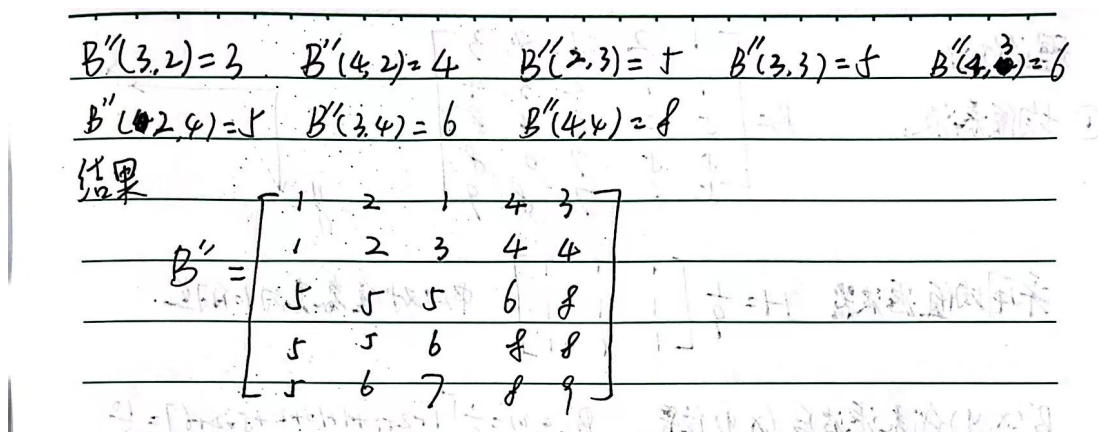 B″(3,2)=3 B″(4,2)=4 B″(2,3)=5 B″(3,3)=5 B″(4,3)=6
B″(2,4)=5 B″(3,4)=6 B″(4,4)=8
结果
B″ =
1 2 1 4 3
1 2 3 4 4
5 5 5 6 8
5 5 6 8 8
5 6 7 8 9